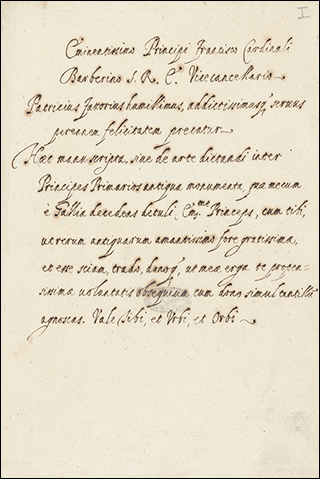 I
Eminentissimo Principi Francisco Cardinali
Barberino S. R. E. Vicecancellario
Patricius Junorius humillimus, addictissimusq; seruus
perennem felicitatem precatur
Hæc manuscripta, siue de arte dictandi inter
Principes Primarios antiqua monumenta quæ mecum
è Gallia decedens detuli Em.me Princeps, cum tibi,
ut rerum antiquarum amantissimo fore gratissima,
et esse sciam, trado, donoq; ut meæ erga te propen-
sissimæ uoluntatis obsequium cum dono simul tantillo
agnoscas. Vale Sibi, et Vrbi, et Orbi